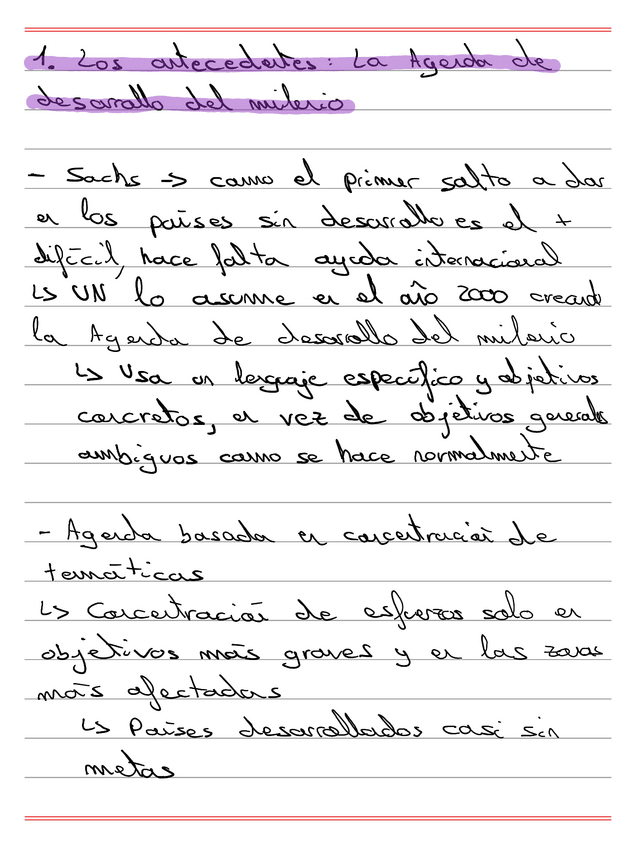 1. Los antecedentes: La Agenda de
desarrollo del milenio
- Sachs -> como el primer salto a dar
en los países sin desarrollo es el +
difícil, hace falta ayuda internacional
↳ UN lo asume en el año 2000 creand
la Agenda de desarrollo del milenio
↳ Usa un lenguaje específico y objetivos
concretos, en vez de objetivos generales
ambiguos como se hace normalmente
- Agenda basada en concentración de
temáticas
↳ Concentración de esfuerzos solo en
objetivos más graves y en las zonas
más afectadas
↳ Países desarrollados casi sin
metas